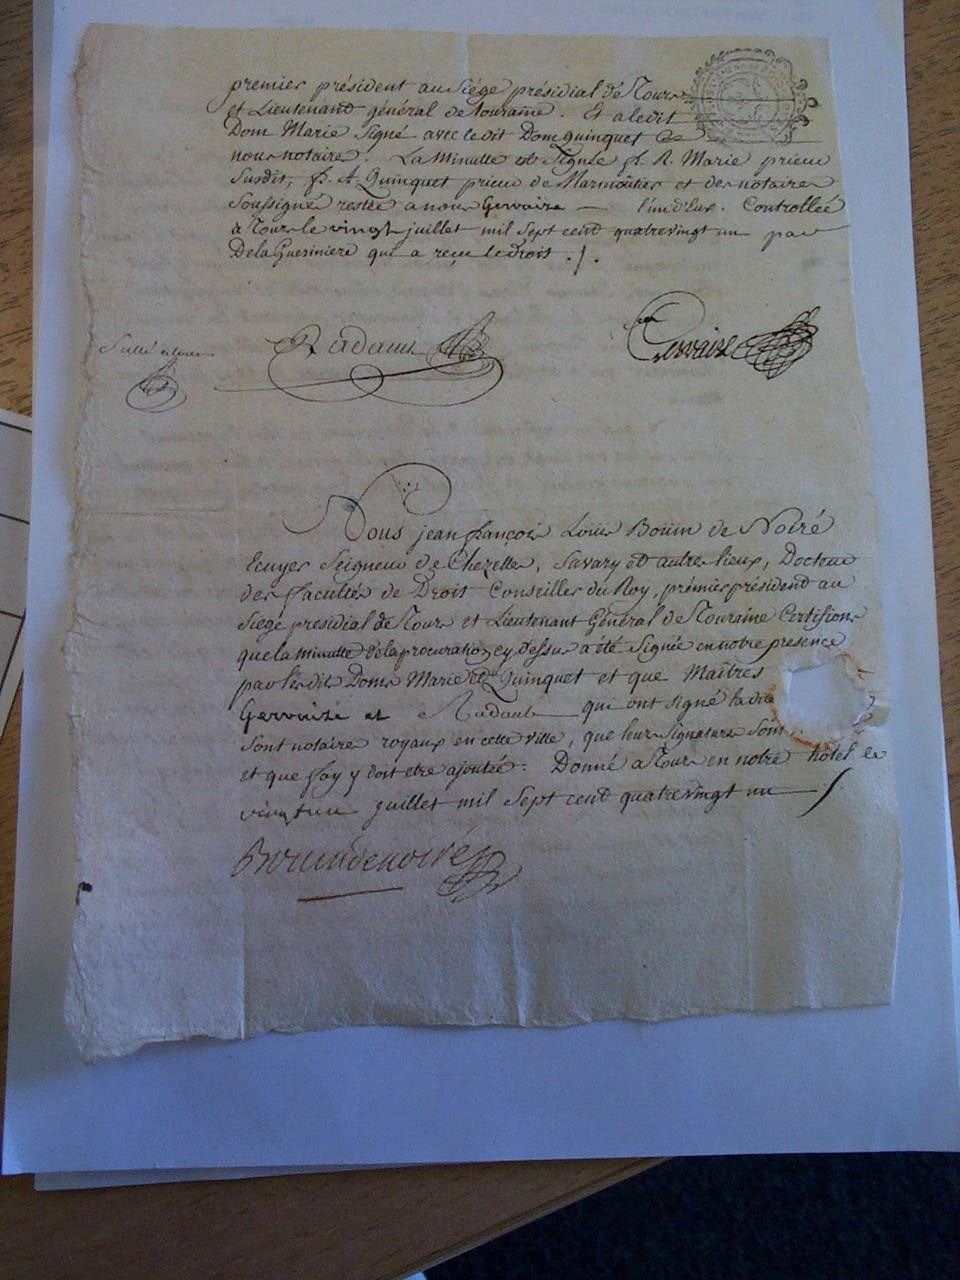 premier président au Siége présidial de Tours
et Lieutenant général de touraine. Et a ledit
Dom Marie Signé avec ledit Dom Quinquet &
nous notaire. La Minutte est Signée f. R. Marie prieur
Susdit, f. A. Quinquet prieur de Marmoutier et des notaires
Soussignés restée a nous Gervaize — l'un d'Eux. Controllée
à Tours le vingt juillet mil Sept cent quatrevingt un par
De la Guesiniere qui a reçu le Droit ./.
Gervaize
Radault
Scellé
Nous jean françois Louis Boüin de Noiré
Ecuyer Seigneur de Chezelles, Savary et autres lieux, Docteur
des facultés de Droit Conseiller du Roy, prémier président au
Siége presidial de Tours et Lieutenant Général de Touraine Certifions
que la minutte de la procuration cy dessus a été Signée en notre présence
par lesdits Doms Marie et Quinquet et que Maîtres
Gervaize et Radault — qui ont signé la
Sont notaires royaux en cette ville, que leurs Signatures Sont
et que foy y doit etre ajoutée. Donné a Tours en notre hôtel le
vingt un juillet mil Sept cent quatrevingt un — /.
Bouin de noiré